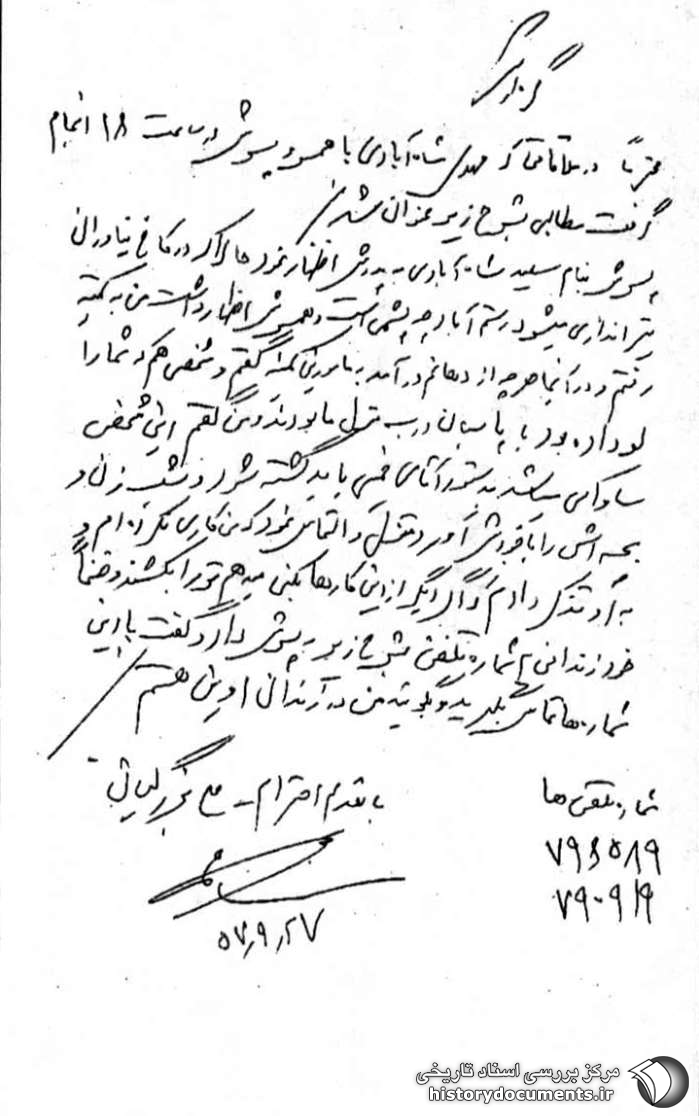 گزارش
محترماً در ملاقاتی که مهدی شاه‌آبادی با همسر و پسرش در ساعت ۱۸ انجام
گرفت مطالبی بشرح زیر عنوان شد
پسرش بنام سعید شاه‌آبادی به پدرش اظهار نمود حالا که در کاخ نیاوران
تیراندازی میشود رستم آباد چه چشمی است و همسرش اظهار داشت من به کمیته
رفتم و در آنجا هر چه از دهانم در آمد به مامورین کمیته گفتم و شخصی هم که شما را
لو داده بود با پاسبان درب منزل ما بودند و من گفتم این شخص
ساواکی میباشد بدستور آقای خمینی باید کشته شود و شب زن و
بچه اش را با خودش آورد منزل و التماس نمود که من کاری نکرده ام و
به او تذکر دادم که اگر دیگر از این کارها بکنی میدهم تو را بکشند و ضمناً
خود زندانی شماره تلفنی بشرح زیر به پسرش داد و گفت با این
شماره‌ها تماس بگیرید و بگوئید من در زندان اوین هستم
شماره تلفن ها
۷۹۴۵۸۹
۷۹۰۹۱۹
با تقدیم احترام
۵۷٫۹٫۲۷
مرکز بررسی اسناد تاریخی
historydocuments.ir